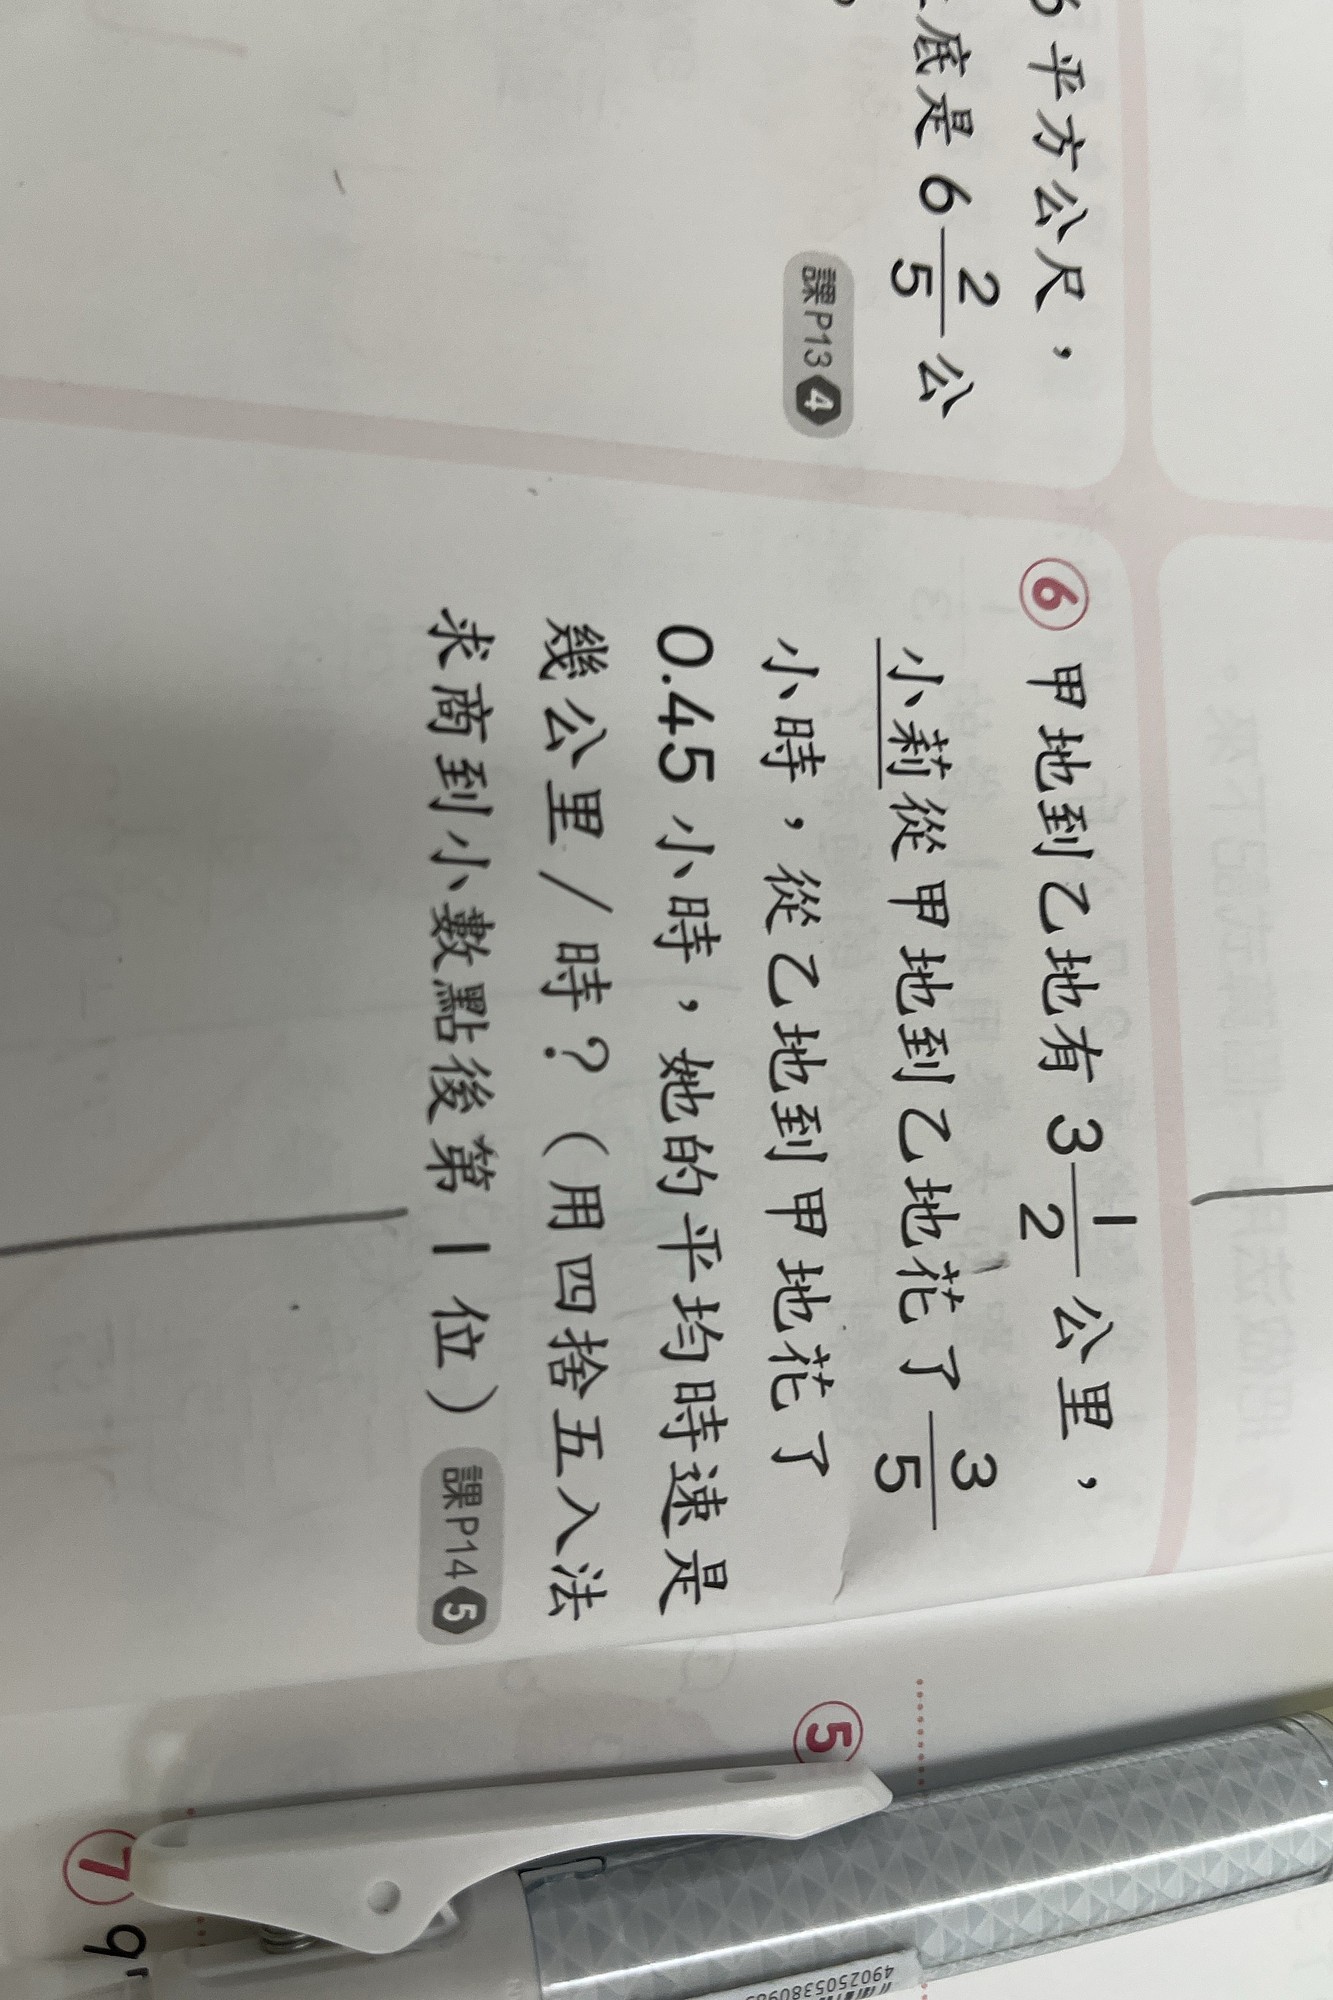 6 平方公尺，
底是 6 2/5 公
課P13 4
⑥ 甲地到乙地有 3 1/2 公里，
小莉從甲地到乙地花了 3/5
小時，從乙地到甲地花了
0.45 小時，她的平均時速是
幾公里／時？（用四捨五入法
求商到小數點後第 1 位）課P14 5
⑤
⑦ 9